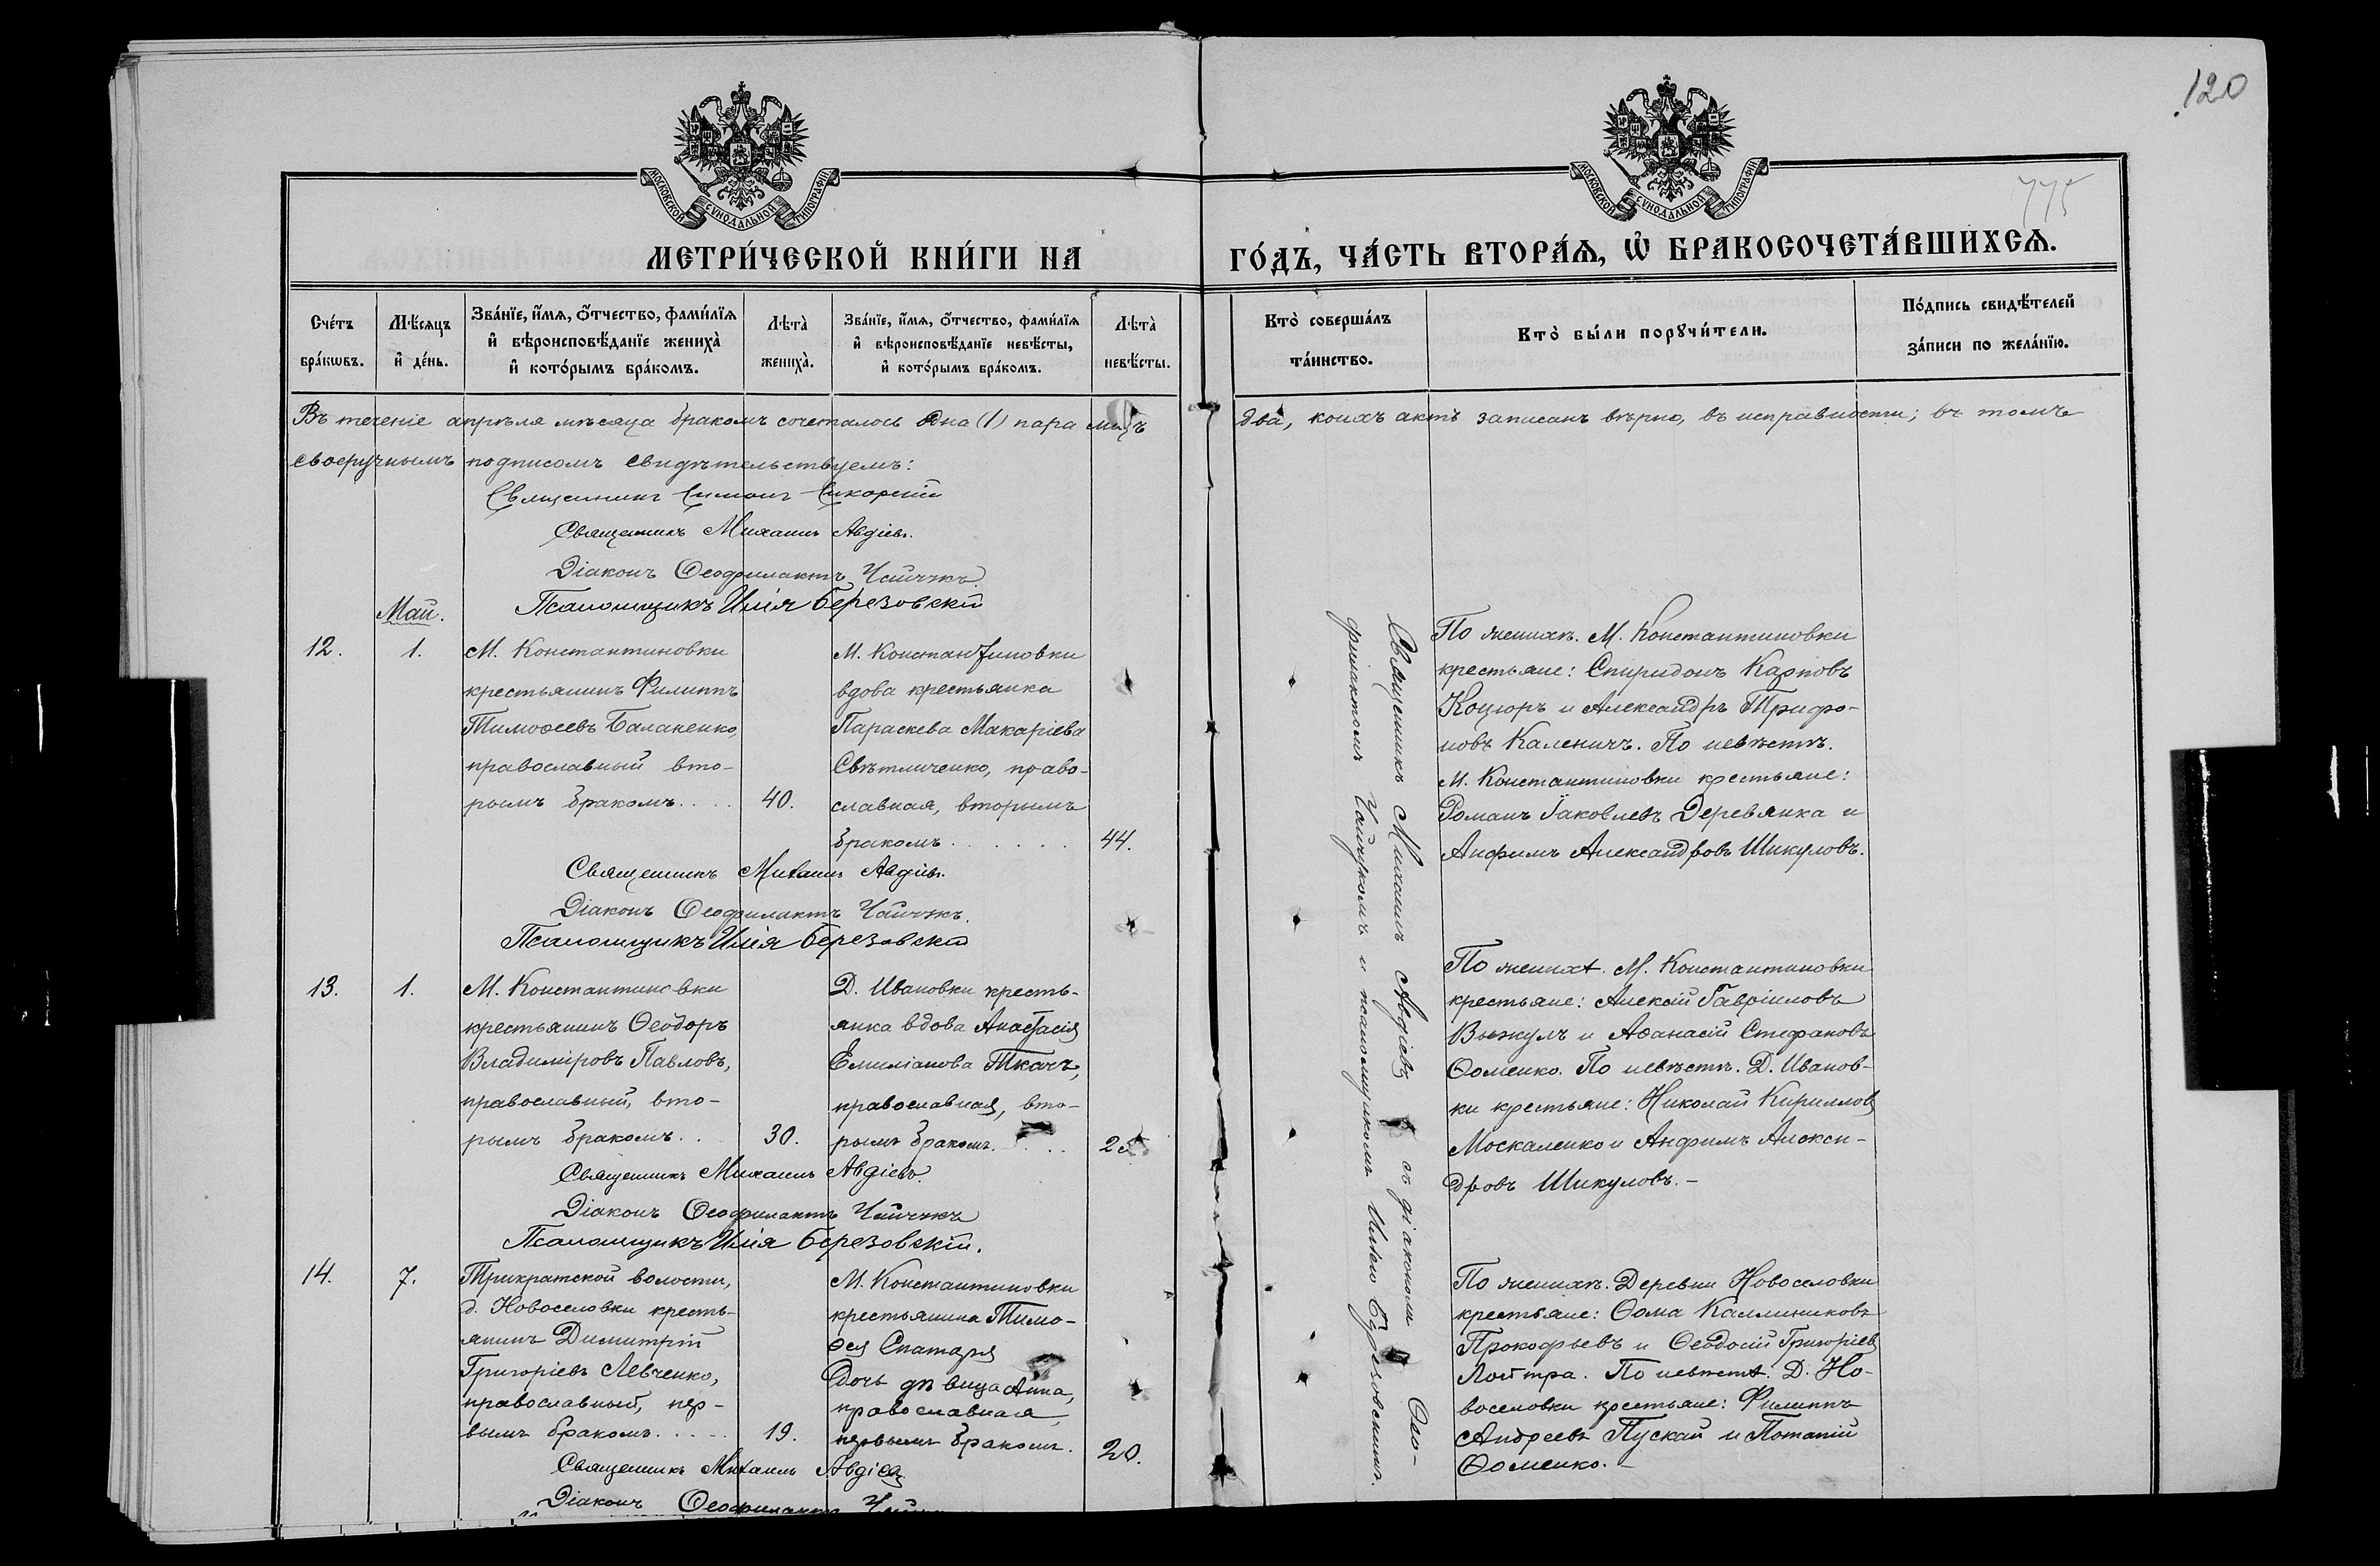 120
775
МОСКОВСКОЙ СѴНОДАЛЬНОЙ ТИПОГРАФІИ
МОСКОВСКОЙ СѴНОДАЛЬНОЙ ТИПОГРАФІИ
МЕТРИ́ЧЕСКОЙ КНИ́ГИ НА ГО́ДЪ, ЧА́СТЬ ВТОРА́Ѧ, Ѿ БРАКОСОЧЕТА́ВШИХСѦ.
Сче́тъ бра́кѡвъ.
Мѣ́сѧцъ и҆ де́нь.
Зва́нїе, и҆́мѧ, ѻ҆́тчество, фами́лїѧ
и҆ вѣроисповѣ́данїе жениха̀
и҆ кото́рымъ бра́комъ.
Лѣта̀ жениха̀.
Зва́нїе, и҆́мѧ, ѻ҆́тчество, фами́лїѧ
и҆ вѣроисповѣ́данїе невѣ́сты,
и҆ кото́рымъ бра́комъ.
Лѣта̀ невѣ́сты.
Кто̀ соверша́лъ та́инство.
Кто̀ бы́ли порꙋчи́тели.
По́дпись свидѣ́телей
за́писи по жела́нїю.
Въ теченіе апрѣля мѣсяца бракомъ сочеталось одна (1) пара лицъ два, коихъ актъ записанъ вѣрно, въ исправности; въ томъ
своеручнымъ подписомъ свидѣтельствуемъ:
Священникъ Симонъ Сикорскій
Священникъ Михаилъ Авдіевъ.
Діаконъ Ѳеофилактъ Чайчукъ.
Псаломщикъ Илія Березовскій
Май.
12.
1.
М. Константиновки
крестьянинъ Филиппъ
Тимоѳеевъ Балакенко,
православный вто-
рымъ бракомъ....
40.
М. Константиновки
вдова крестьянка
Параскева Макаріева
Свѣтличенко, право-
славная, вторымъ
бракомъ.......
44.
Священникъ Михаилъ Авдіевъ
съ діакономъ Ѳео-
филактомъ Чайчукомъ и псаломщикомъ Иліею Березовскимъ.
По женихѣ. М. Константиновки
крестьяне: Спиридонъ Карповъ
Коцюръ и Александръ Трифо-
новъ Каленичъ. По невѣстѣ.
М. Константиновки крестьяне:
Романъ Іаковлевъ Деревянка и
Анфимъ Александровъ Шикуловъ.
Священникъ Михаилъ Авдіевъ.
Діаконъ Ѳеофилактъ Чайчукъ.
Псаломщикъ Илія Березовскій
13.
1.
М. Константиновки
крестьянинъ Ѳеодоръ
Владиміровъ Павловъ,
православный, вто-
рымъ бракомъ...
30.
Д. Ивановки кресть-
янка вдова Анастасія
Емиліанова Ткачъ,
православная, вто-
рымъ бракомъ....
По женихѣ. М. Константиновки
крестьяне: Алексій Гавріиловъ
Выжулъ и Аѳанасій Стефановъ
Ѳоменко. По невѣстѣ. Д. Иванов-
ки крестьяне: Николай Кирилловъ
Москаленко и Анфимъ Алекса-
дровъ Шикуловъ.-
Священникъ Михаилъ Авдіевъ.
Діаконъ Ѳеофилактъ Чайчукъ
Псаломщикъ Илія Березовскій.
14.
7.
Трикратской волости,
д. Новоселовки кресть-
янинъ Димитрій
Григоріевъ Левченко,
православный, пер-
вымъ бракомъ.....
19.
М. Константиновки
крестьянина Тимо-
ѳея Спатаря
дочь дѣвица Анна,
православная,
первымъ бракомъ.
20.
По женихѣ. Деревни Новоселовки
крестьяне: Ѳома Каллиниковъ
Прокофьевъ и Ѳеодосій Григоріевъ
По невѣстѣ. Д. Но-
воселовки крестьяне: Филиппъ
Андреевъ Пускай и Потапій
Ѳоменко.-
Священникъ Михаилъ Авдіевъ
Діаконъ Ѳеофилактъ